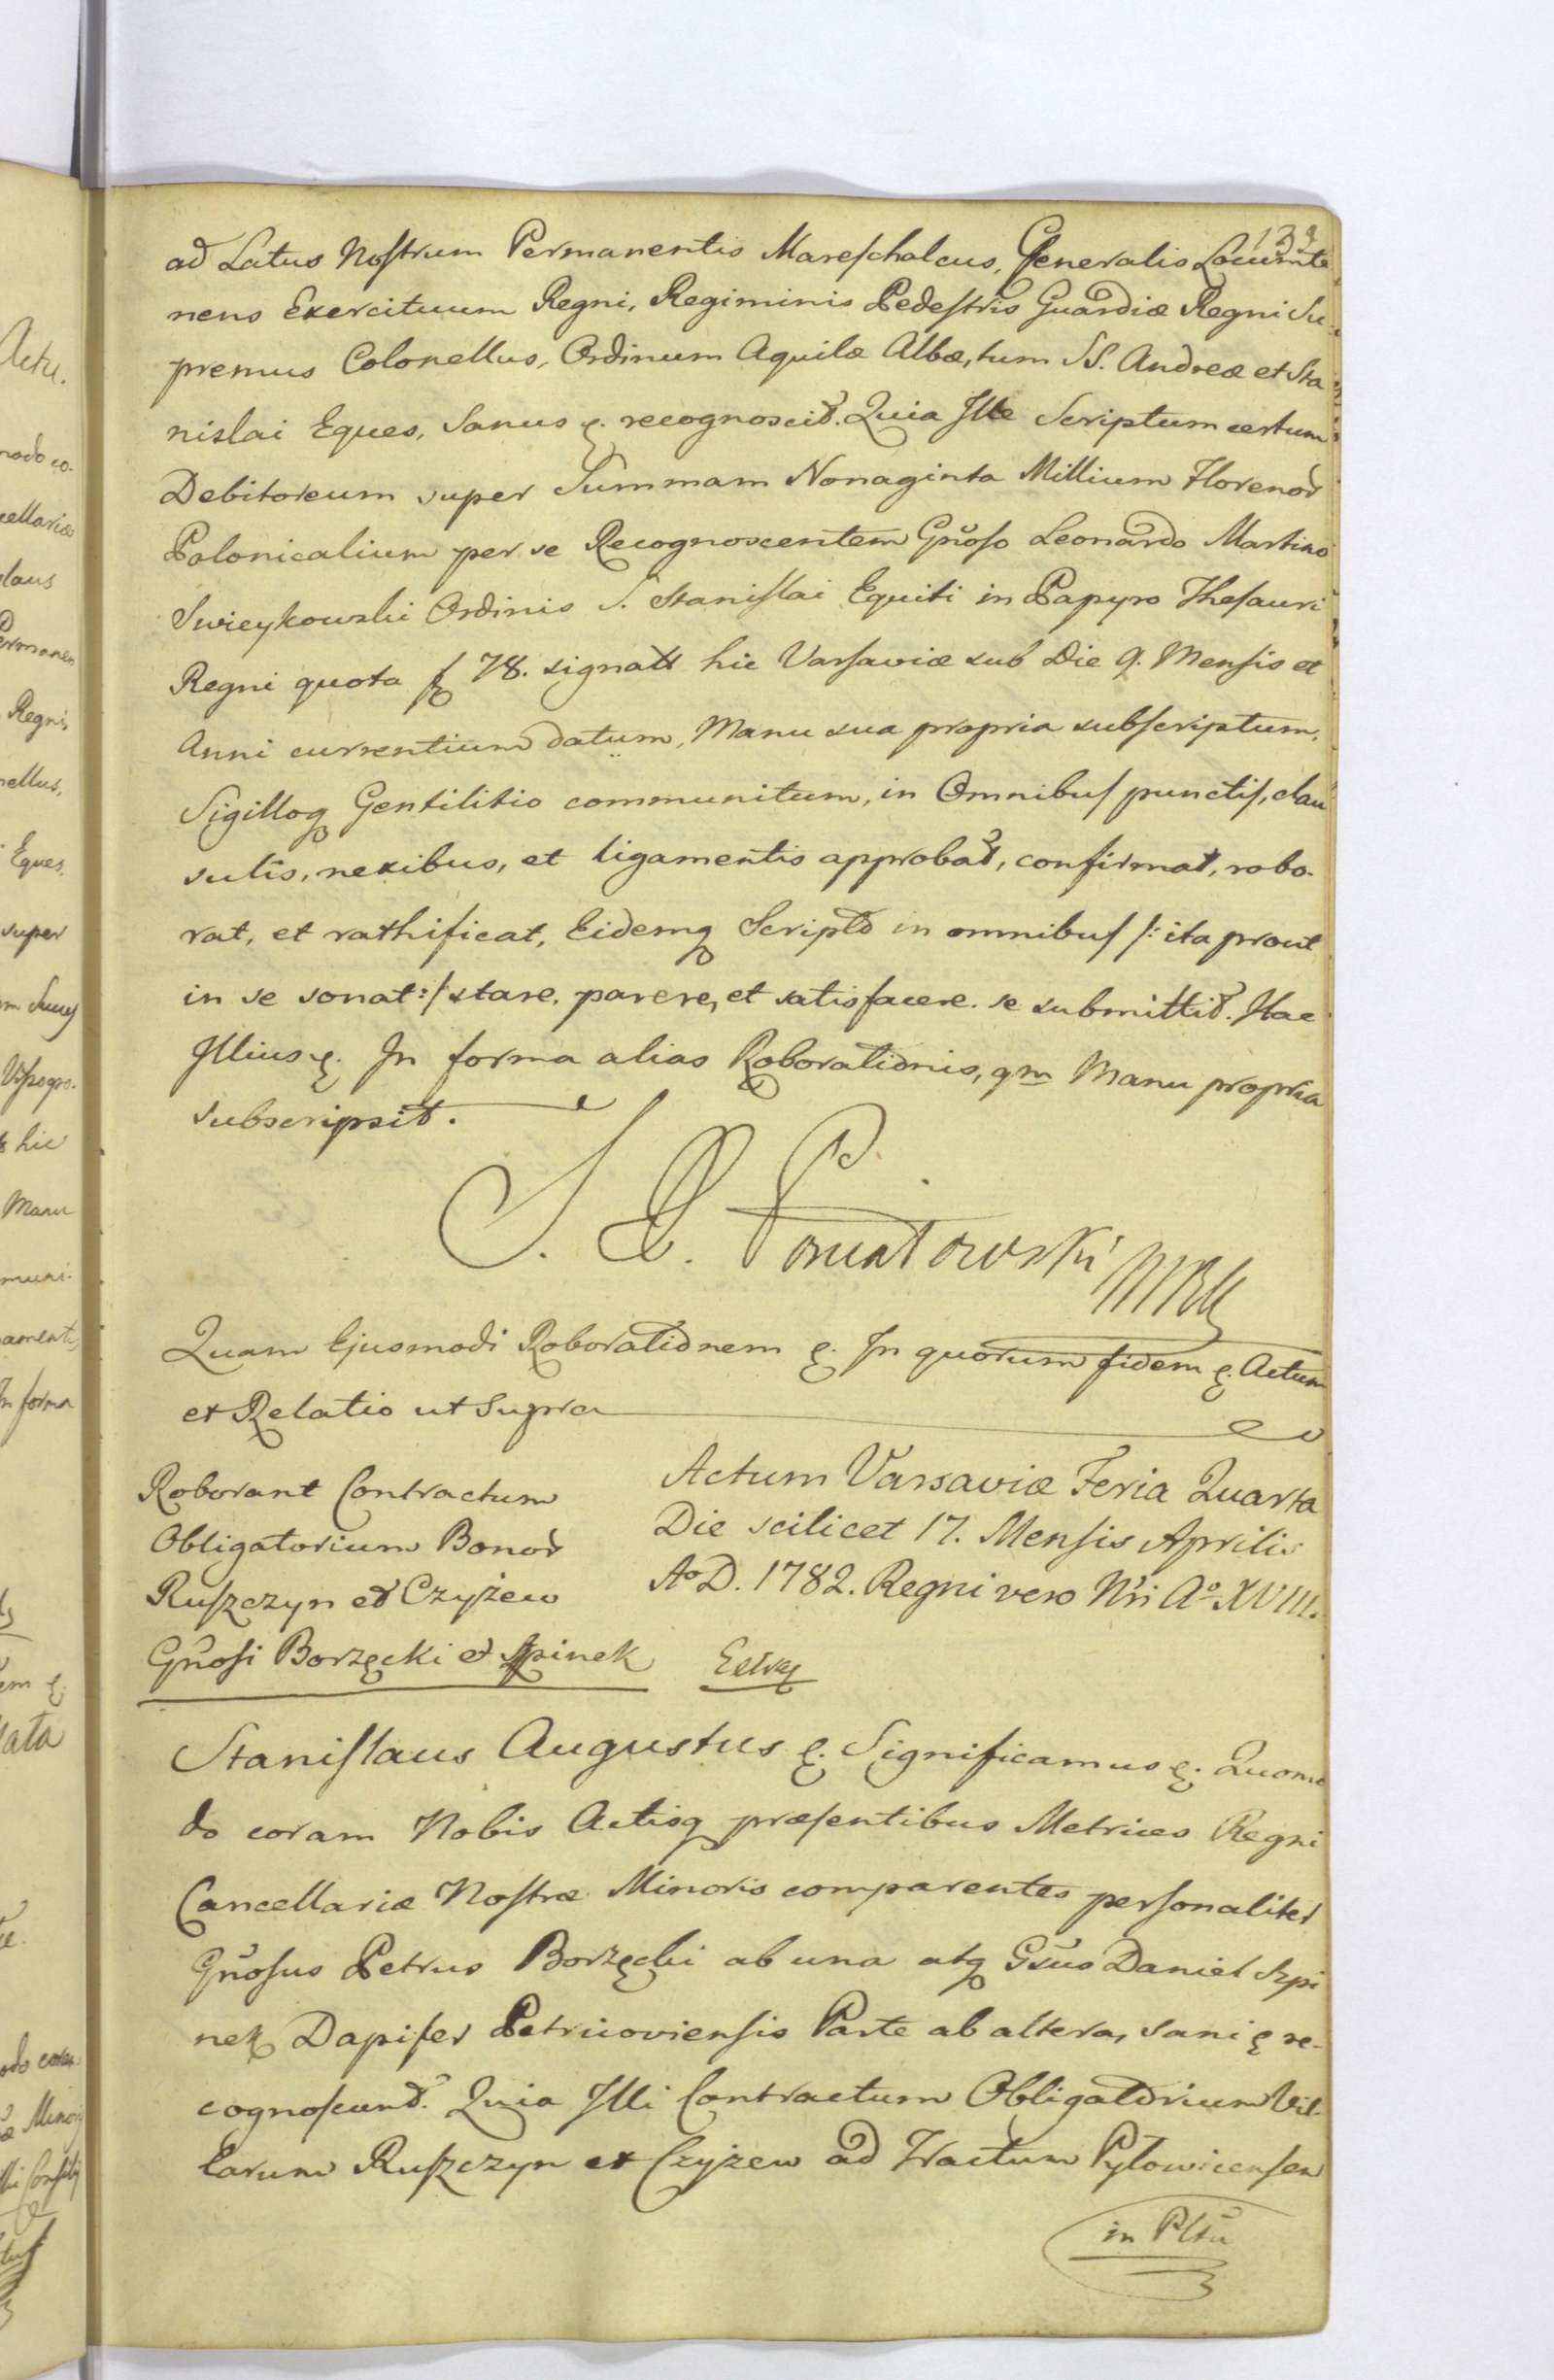 139
ad Latus Nostrum Permanentis Mareschalcus, Generalis Locumte
nens Exercituum Regni, Regiminis Pedestris Guardiæ Regni Su-
premus Colonellus, Ordinum Aquilæ Albæ, tum SS. Andreæ et Sta
nislai Eques, Sanus &. recognoscit. Quia Ille Scriptum certum
Debitoreum super Summam Nonaginta Millium Floreno&
Polonicalium per se Recognoscentem Gnoso Leonardo Martino
Swieykowski Ordinis S. Stanislai Equiti in Papyro Thesauri
Regni quota f 78. signata hic Varsaviæ sub Die 9. Mensis et
Anni currentium datum, Manu sua propria subscriptum,
Sigilloq Gentilitio communitum, in Omnibus punctis, clau
sulis, nexibus, et ligamentis approbat, confirmat, robo-
rat, et rathificat, Eidemq Scripto in omnibus /: ita prout
in se sonat :/ stare, parere, et satisfacere se submittit. Hac
Illius &. In forma alias Roborationis, qm Manu propria
subscripsit.
S. P. Poniatowski
Quam Ejusmodi Roborationem &. In quorum fidem &. Actum
et Relatio ut Supra
Roborant Contractum
Obligatorium Bonor
Ruszczyn et Czyżew
Gnosi Borzęcki et Spinek
Actum Varsaviæ Feria Quarta
Die scilicet 17. Mensis Aprilis
Ao D. 1782. Regni vero Nri Ao XVIII.
Stanislaus Augustus &. Significamus &. Quomo
do coram Nobis Actisq præsentibus Metrices Regni
Cancellariæ Nostræ Minoris comparentes personaliter
Gnosus Petrus Borzęcki ab una atq Gsus Daniel Szpi
nek Dapifer Petricoviensis Parte ab altera, sani & re-
cognoscunt. Quia Illi Contractum Obligatorium Vil-
larum Ruszczyn et Czyżew ad Tractum Pytowicensem
in Pltu
Actu.
modo co-
cellariæ
slaus
Permanen
Regni,
nellus,
Eques,
super
hic
Manu
muni-
ament
In forma